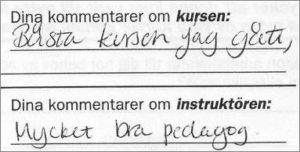 Dina kommentarer om kursen:
Bästa kursen jag gått,
Dina kommentarer om instruktören:
Mycket bra pedagog.